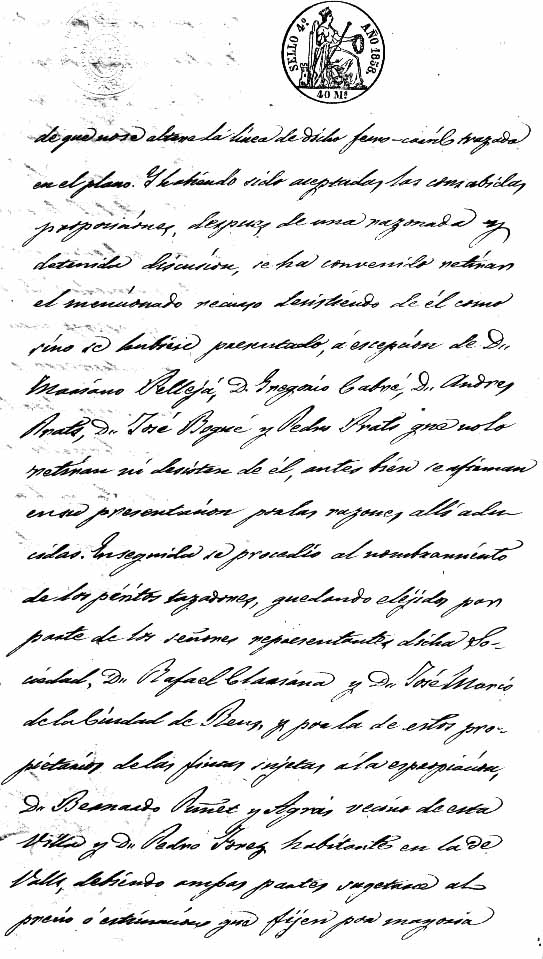 SELLO 4º AÑO 1858.
40 Ms
de que no se altere la linea de dicho ferro-carril trazada
en el plano. Y habiendo sido aceptadas las consabidas
proposiciónes, despues de una razonada y
detenida discusion, se ha convenido retirar
el menciónado recurso desistiendo de él como
sino se hubiese presentado, á escepción de Dn
Mariano Pellejá, D. Gregorio Cabré, Dn Andres
Prats, Dn José Bogué y Pedro Prats que no lo
retiran ni desisten de él, antes bien se afirman
en su presentación por las razones alli adu-
cidas. Enseguida se procedió al nombramiento
de los péritos tazadores, quedando elejidos por
parte de los señores representantes dicha So-
ciedad, Dn Rafael y Dn José Maria
de la Ciudad de Reus, y por la de estos pro-
pietarios de las fincas sujetas á la espropiación,
Dn Bernardo y Agrás vecino de esta
Villa y Dn Pedro habitante en la de
Valls, debiendo ambas partes sugetarse al
precio ó estimacion que fijen por mayoria